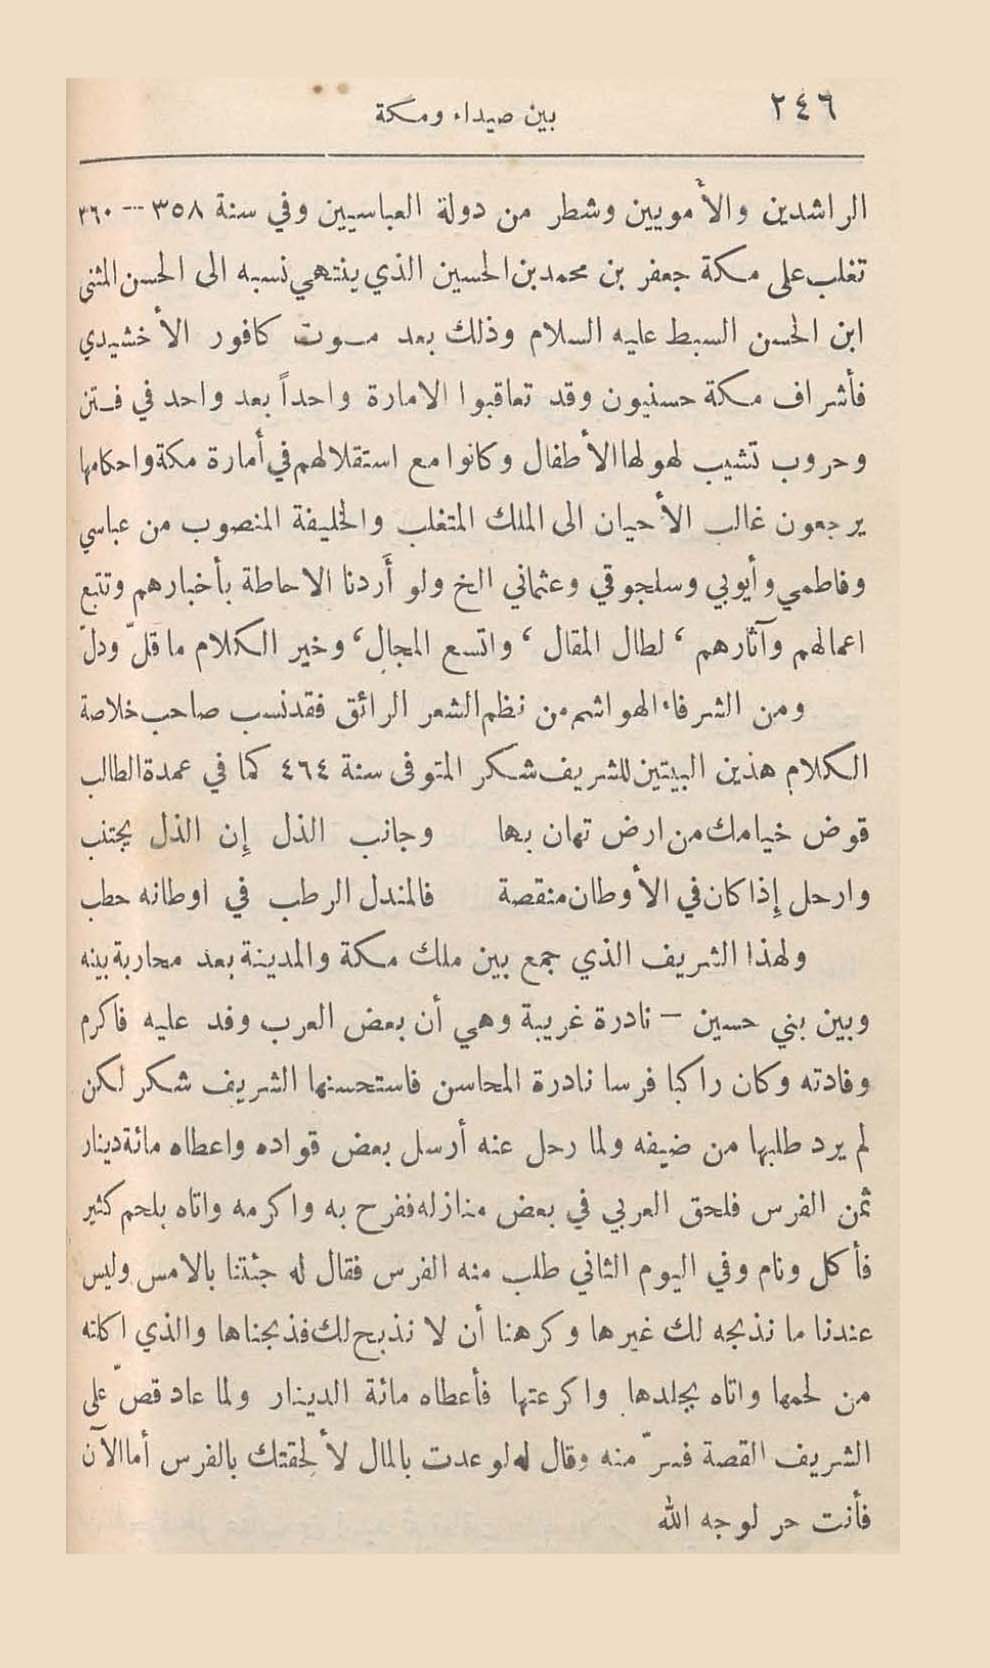 ٢٤٦
بين صيداء ومكة
الراشدين والأمويين وشطر من دولة العباسيين وفي سنة ٣٥٨ — ٣٦٠
تغلب على مكة جعفر بن محمد بن الحسين الذي ينتهي نسبه الى الحسن المثنى
ابن الحسن السبط عليه السلام وذلك بعد موت كافور الأخشيدي
فأشراف مكة حسنيون وقد تعاقبوا الامارة واحداً بعد واحد في فتن
وحروب تشيب لهولها الأطفال وكانوا مع استقلالهم في أمارة مكة واحكامها
يرجعون غالب الأحيان الى الملك المتغلب والخليفة المنصوب من عباسي
وفاطمي وأيوبي وسلجوقي وعثماني الخ ولو أَردنا الاحاطة بأخبارهم وتتبع
اعمالهم وآثارهم ، لطال المقال ، واتسع المجال، وخير الكلام ما قلّ ودلّ
ومن الشرفاء الهواشم من نظم الشعر الرائق فقد نسب صاحب خلاصة
الكلام هذين البيتين للشريف شكر المتوفى سنة ٤٦٤ كما في عمدة الطالب
قوض خيامك من ارض تهان بها وجانب الذل إن الذل يجتنب
وارحل إذا كان في الأوطان منقصة فالمندل الرطب في اوطانه حطب
ولهذا الشريف الذي جمع بين ملك مكة والمدينة بعد محاربة بينه
وبين بني حسين — نادرة غريبة وهي أن بعض العرب وفد عليه فاكرم
وفادته وكان راكبا فرسا نادرة المحاسن فاستحسنها الشريف شكر لكن
لم يرد طلبها من ضيفه ولما رحل عنه أرسل بعض قواده واعطاه مائة دينار
ثمن الفرس فلحق العربي في بعض منازله ففرح به واكرمه واتاه بلحم كثير
فأكل ونام وفي اليوم الثاني طلب منه الفرس فقال له جئتنا بالامس وليس
عندنا ما نذبحه لك غيرها وكرهنا أن لا نذبح لك فذبحناها والذي اكلته
من لحمها واتاه بجلدها واكرعتها فأعطاه مائة الدينار ولما عاد قصّ على
الشريف القصة فسرّ منه وقال له لو عدت بالمال لألحقتك بالفرس أما الآن
فأنت حر لوجه الله